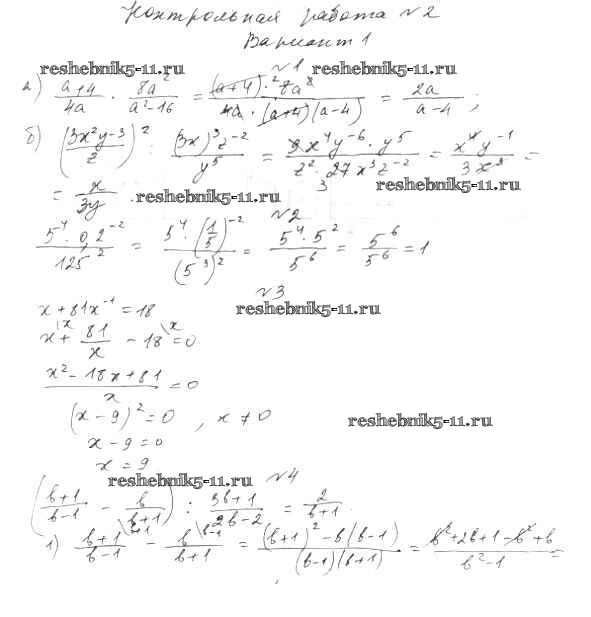 Контрольная работа №2
Вариант 1
№1
reshebnik5-11.ru reshebnik5-11.ru
а) (a+4)/(4a) · (8a²)/(a²-16) = ((a+4)·²8a²)/(4a·(a+4)(a-4)) = 2a/(a-4) ;
б) ((3x²y⁻³)/z)² : ((3x)³z⁻²)/y⁵ = (9x⁴y⁻⁶·y⁵)/(z²·27x³z⁻²) = (x⁴y⁻¹)/(3x³) =
reshebnik5-11.ru
= x/(3y) .
reshebnik5-11.ru
№2
(5⁴·0,2⁻²)/125² = (5⁴·(1/5)⁻²)/(5³)² = (5⁴·5²)/5⁶ = 5⁶/5⁶ = 1
№3
x + 81x⁻¹ = 18
reshebnik5-11.ru
x\x + 81/x - 18\x = 0
(x² - 18x + 81)/x = 0
(x - 9)² = 0 , x ≠ 0
reshebnik5-11.ru
x - 9 = 0
x = 9
reshebnik5-11.ru
№4
((b+1)/(b-1) - b/(b+1)) : (3b+1)/(2b-2) = 2/(b+1)
1) (b+1)/(b-1)\b+1 - b/(b+1)\b-1 = ((b+1)² - b(b-1))/((b-1)(b+1)) = (b²+2b+1-b²+b)/(b²-1) =